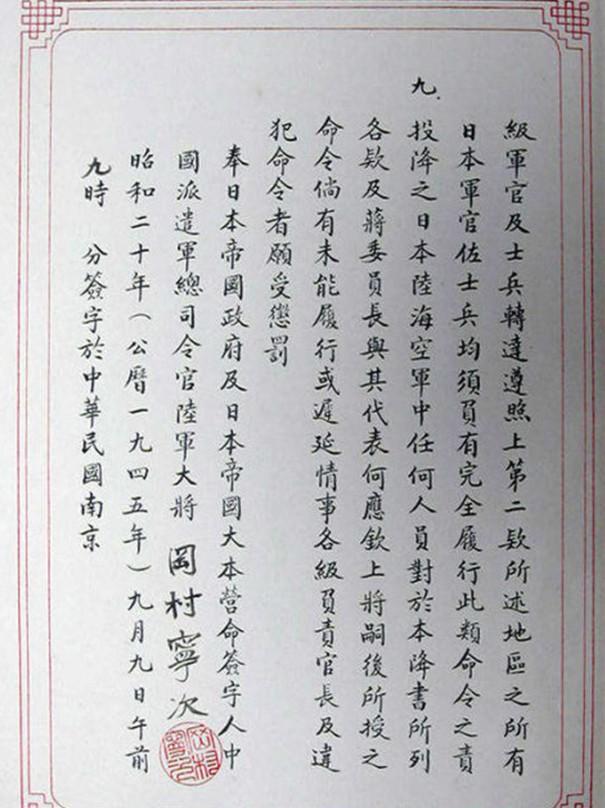 級軍官及士兵轉達遵照上第二欵所述地區之所有
日本軍官佐士兵均須負有完全履行此類命令之責
九.投降之日本陸海空軍中任何人員對於本降書所列
各欵及蔣委員長與其代表何應欽上將嗣後所授之
命令倘有未能履行或遲延情事各級負責官長及違
犯命令者願受懲罰
奉日本帝國政府及日本帝國大本營命簽字人中
國派遣軍總司令官陸軍大將 岡村寧次
昭和二十年(公曆一九四五年)九月九日午前
九時 分簽字於中華民國南京